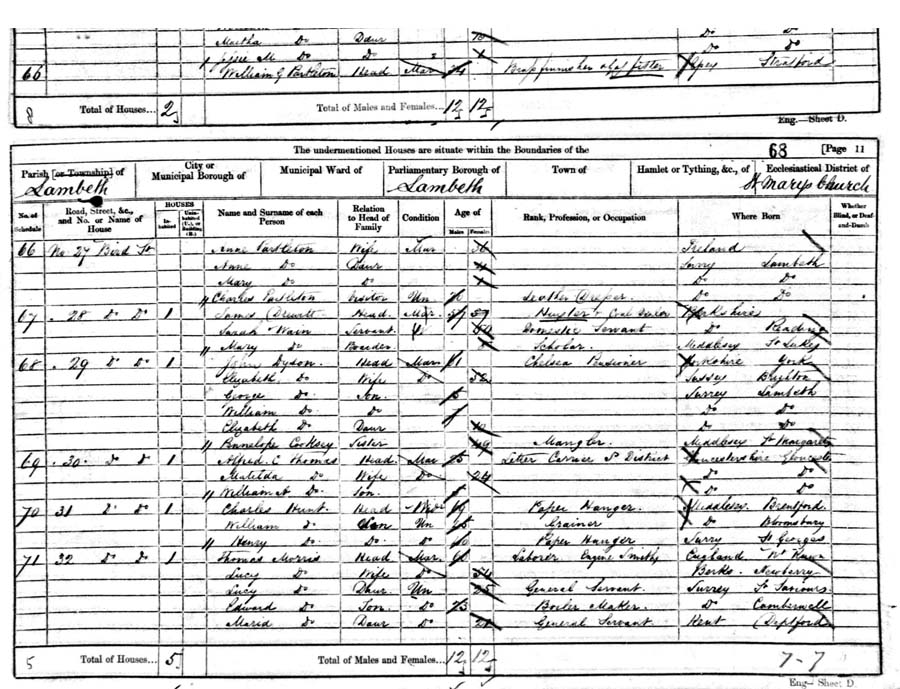 Martha Do Daur Do Do
Jessie M Do Do Do Do
66 William G Partleton Head Mar Brass finisher & Gas fitter Essex Stratford
8 Total of Houses... 2 Total of Males and Females... 12 12
Eng.—Sheet D.
The undermentioned Houses are situate within the Boundaries of the 68 [Page 11
Parish [or Township] of City or Municipal Borough of Municipal Ward of Parliamentary Borough of Town of Hamlet or Tything, &c., of Ecclesiastical District of
Lambeth Lambeth St Marys Church
No. of Schedule Road, Street, &c., and No. or Name of House HOUSES Inhabited Uninhabited (U.), or Building (B.) Name and Surname of each Person Relation to Head of Family Condition Age of Males Females Rank, Profession, or Occupation Where Born Whether Blind, or Deaf-and-Dumb
66 No 27 Bird St Anne Partleton Wife Mar Ireland
Anne Do Daur Surry Lambeth
Mary Do Do Do Do
Charles Partleton Visitor Un Leather Do Do
67 28 Do Do 1 James Head Mar 57 & Coal Berkshire
Sarah Wain Servant Domestic Servant Do Reading
Mary Do Scholar Middlesex St Lukes
68 29 Do Do 1 John Dyson Head Mar Chelsea Pensioner Yorkshire York
Elizabeth Do Wife Do 52 Sussex Brighton
George Do Son Surrey Lambeth
William Do Do Do Do
Elizabeth Do Daur Do Do
Pennelope Cooksey Sister 49 Mangler Middlesex St Margarets
69 30 Do Do 1 Alfred C Thomas Head Mar Letter Carrier S District Gloucestershire Gloucester
Matilda Do Wife Do 24 Do Do
William A Do Son Do Do
70 31 Do Do 1 Charles Hunt Head Widr Paper Hanger Middlesex Brentford
William Do Son Un Grainer Do Bloomsbury
Henry Do Do Do Paper Hanger Surry St Georges
71 32 Do Do 1 Thomas Morris Head Mar Laborer Engine Smiths England
Lucy Do Wife Do 54 Berks Newberry
Lucy Do Daur Un 25 General Servant Surrey St Saviours
Edward Do Son Do 23 Boiler Maker Do Camberwell
Maria Do Daur Do 21 General Servant Kent Deptford
5 Total of Houses... 5 Total of Males and Females... 12 12 7-7
Eng—Sheet D.